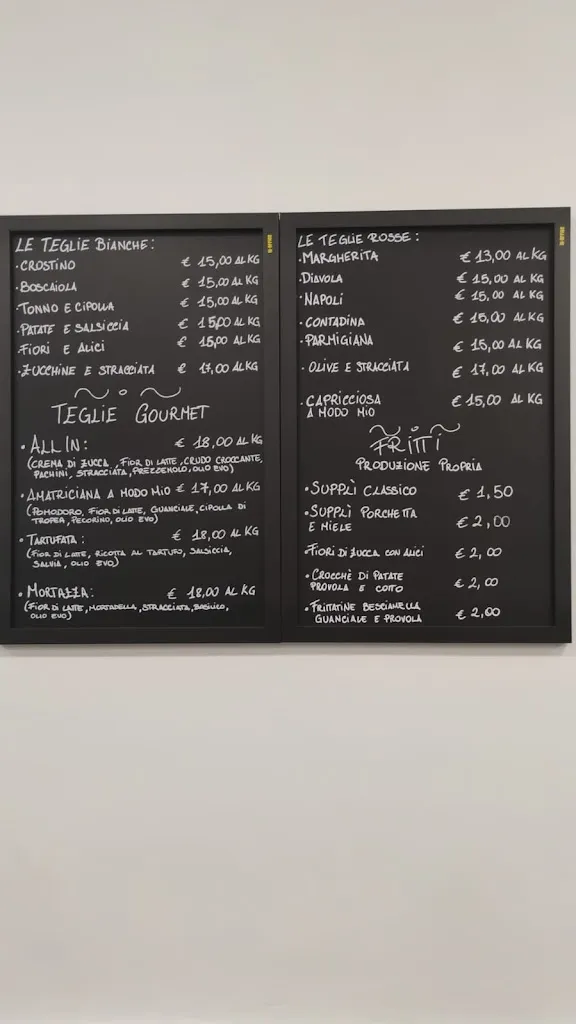 LE TEGLIE BIANCHE:
·CROSTINO € 15,00 AL KG
·BOSCAIOLA € 15,00 AL KG
·TONNO E CIPOLLA € 15,00 AL KG
·PATATE E SALSICCIA € 15,00 AL KG
·FIORI E ALICI € 15,00 AL KG
·ZUCCHINE E STRACCIATA € 17,00 AL KG
TEGLIE GOURMET
·ALL IN: € 18,00 AL KG
(CREMA DI ZUCCA, FIOR DI LATTE, CRUDO CROCCANTE,
PACHINI, STRACCIATA, PREZZEMOLO, OLIO EVO)
·AMATRICIANA A MODO MIO € 17,00 AL KG
(POMODORO, FIOR DI LATTE, GUANCIALE, CIPOLLA DI
TROPEA, PECORINO, OLIO EVO)
·TARTUFATA: € 18,00 AL KG
(FIOR DI LATTE, RICOTTA AL TARTUFO, SALSICCIA,
SALVIA, OLIO EVO)
·MORTAZZA: € 18,00 AL KG
(FIOR DI LATTE, MORTADELLA, STRACCIATA, BASILICO,
OLIO EVO)
LE TEGLIE ROSSE:
·MARGHERITA € 13,00 AL KG
·DIAVOLA € 15,00 AL KG
·NAPOLI € 15,00 AL KG
·CONTADINA € 15,00 AL KG
·PARMIGIANA € 15,00 AL KG
·OLIVE E STRACCIATA € 17,00 AL KG
·CAPRICCIOSA € 15,00 AL KG
A MODO MIO
FRITTI
PRODUZIONE PROPRIA
·SUPPLÌ CLASSICO € 1,50
·SUPPLÌ PORCHETTA
E MIELE € 2,00
·FIORI DI ZUCCA CON ALICI € 2,00
·CROCCHÈ DI PATATE
PROVOLA E COTTO € 2,00
·FRITTATINE BESCIAMELLA
GUANCIALE E PROVOLA € 2,00